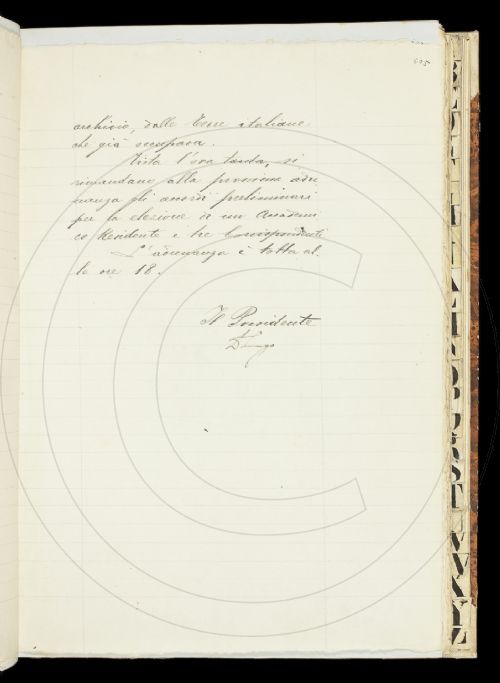 archivio, dalle terre italiane
che già occupava.
Vista l'ora tarda, si
rimandano alla prossima adu
nanza gli accordi preliminari
per la elezione di un Accademi
co Residente e tre Corrispondenti
L'adunanza è tolta al
le ore 18.
Il Presidente